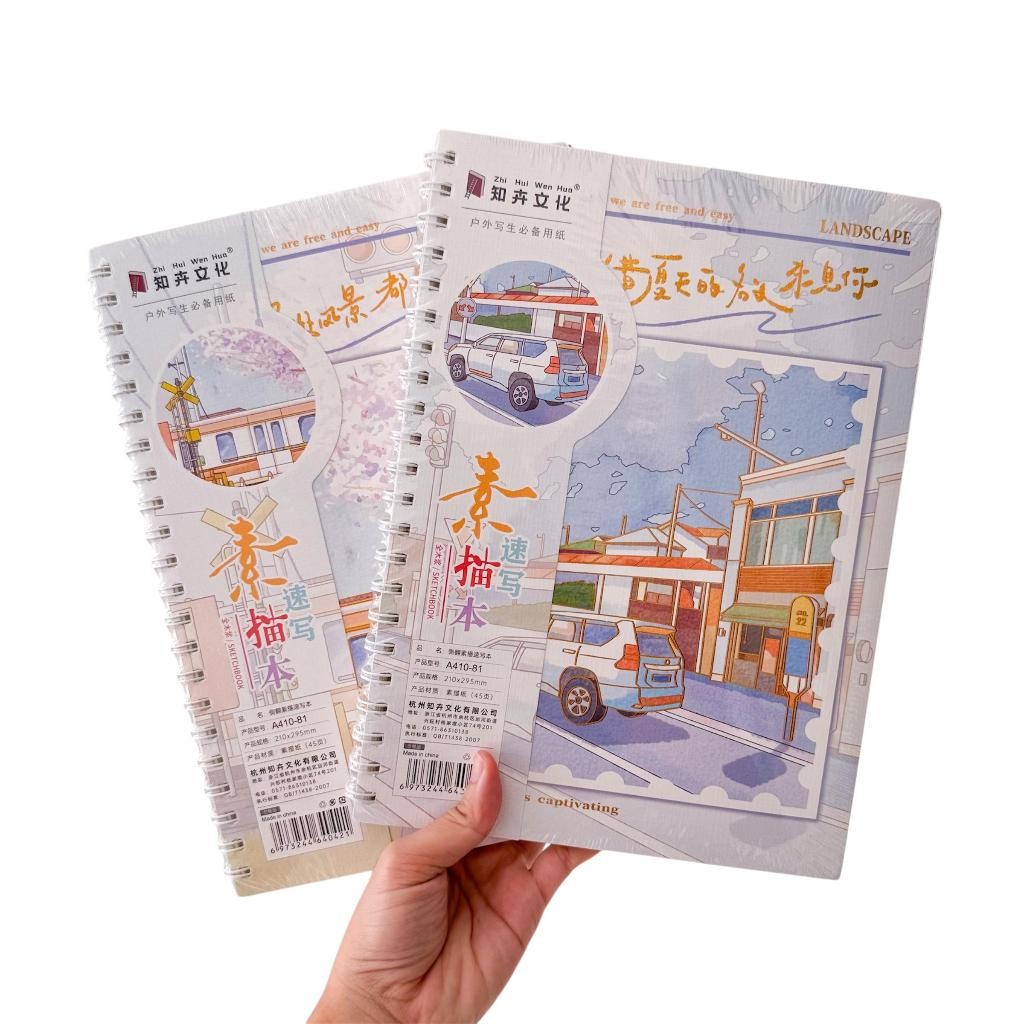 Zhi Hui Wen Hua®
知卉文化
户外写生必备用纸
we are free and easy
风景 都
素描本
速写
全木浆/SKETCHBOOK
品 名: 侧翻素描速写本
产品型号: A410-81
产品规格: 210x295mm
产品材质: 素描纸(45页)
杭州知卉文化有限公司
电话: 0571-86310138
执行标准: QB/T1438-2007
Made in china
6 973244 640421
Zhi Hui Wen Hua®
知卉文化
户外写生必备用纸
we are free and easy
LANDSCAPE
借夏天的名义 来见你
no.
22
素描本
速写
全木浆/SKETCHBOOK
品 名: 侧翻素描速写本
产品型号: A410-81
产品规格: 210x295mm
产品材质: 素描纸(45页)
杭州知卉文化有限公司
电话: 0571-86310138
执行标准: QB/T1438-2007
Made in china
6 973244 64
captivating